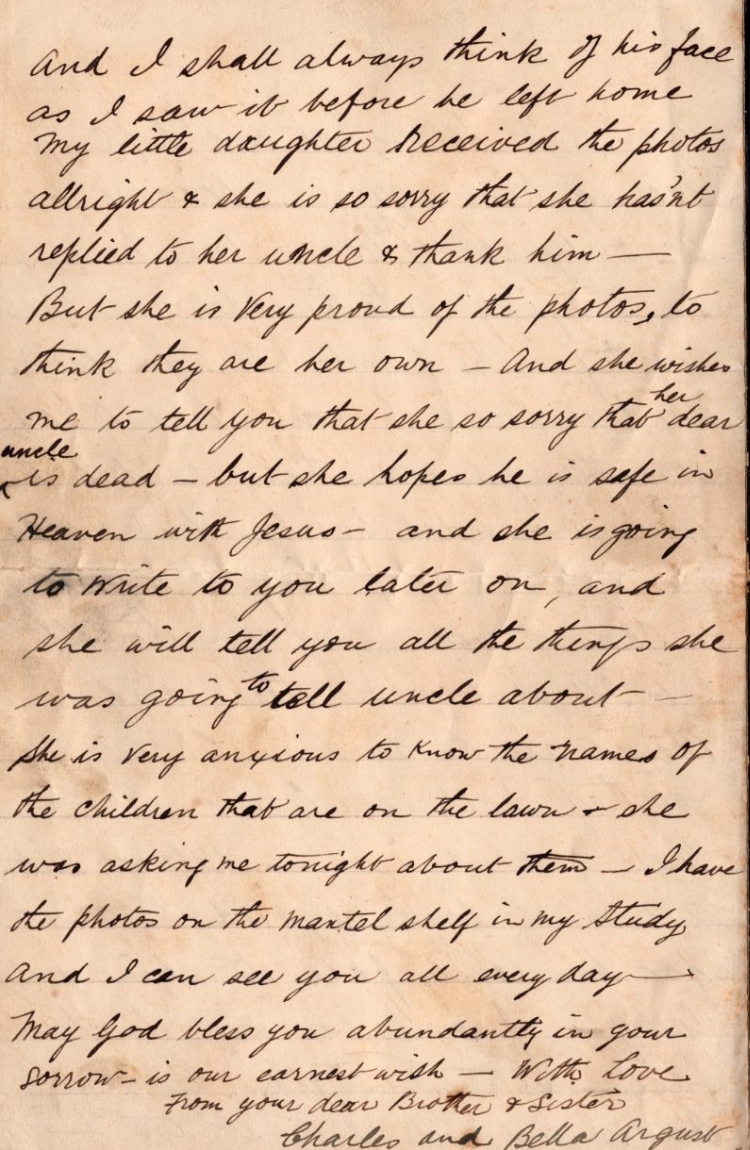 And I shall always think of his face
as I saw it before he left home
My little daughter Received the photos
allright & she is so sorry that she has'nt
replied to her uncle & thank him —
But she is very proud of the photos, to
think they are her own – And she wishes
me to tell you that she so sorry that her dear
uncle is dead – but she hopes he is safe in
Heaven with Jesus – and she is going
to write to you later on, and
she will tell you all the things she
was going to tell uncle about —
She is very anxious to know the names of
the children that are on the lawn & she
was asking me tonight about them – I have
the photos on the mantel shelf in my Study
And I can see you all every day —
May God bless you abundantly in your
sorrow – is our earnest wish – With Love
From your dear Brother & Sister
Charles and Bella Argust